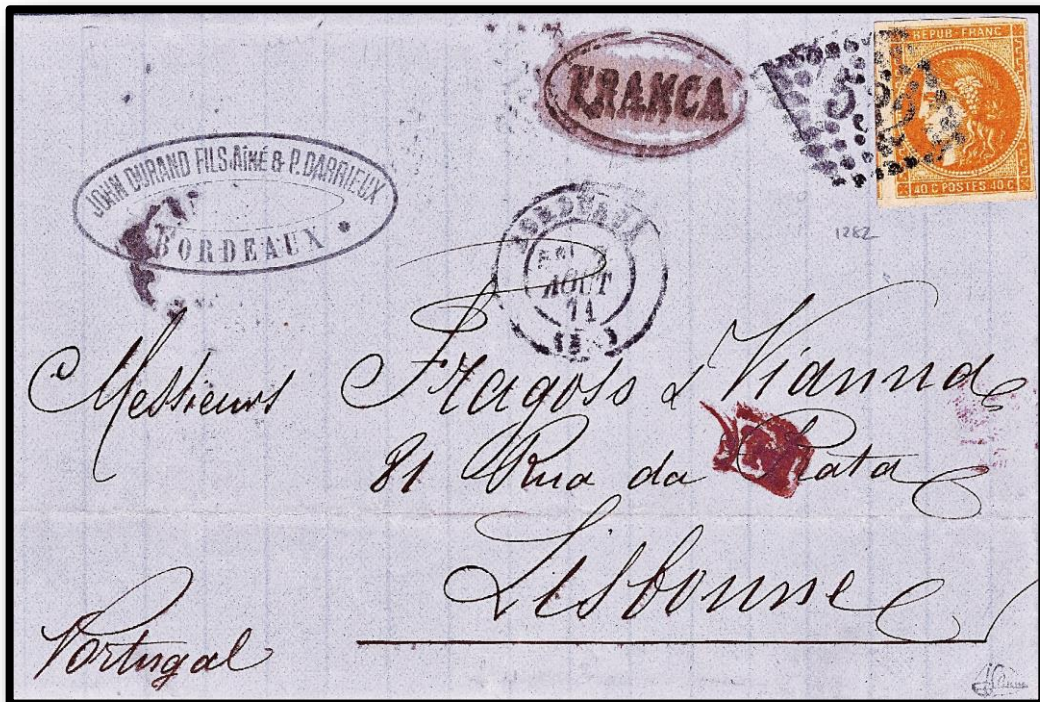 REPUB · FRANC
40 C POSTES 40 C
FRANCA
1282
JOHN DURAND FILS AÎNÉ & P. DARRIEUX
BORDEAUX
BORDEAUX
AOUT
71
Messieurs Fragoso & Vianna
81 Rua da Prata
Lisbonne
Portugal